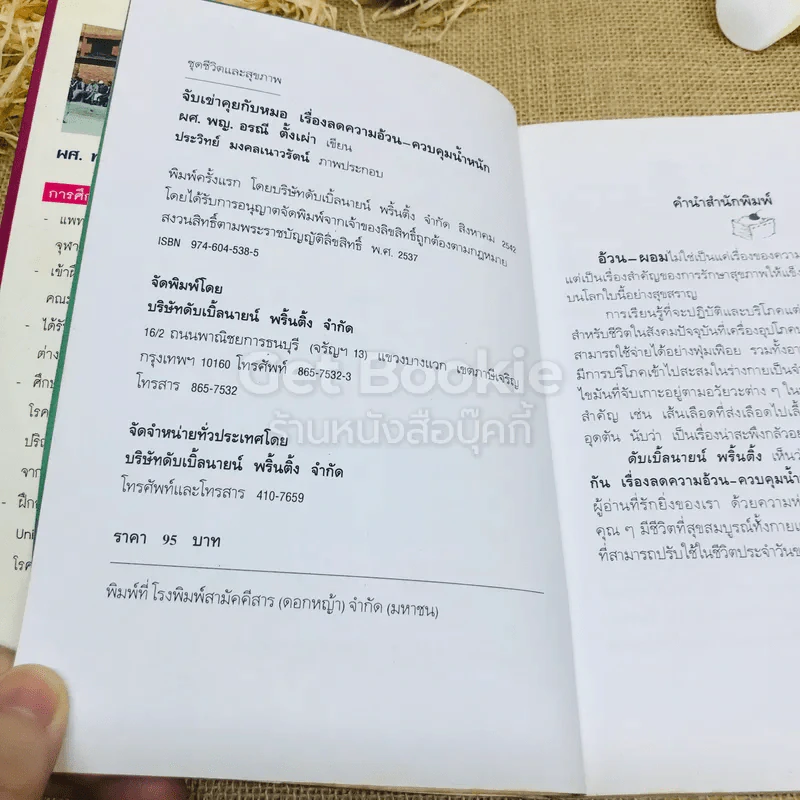 ผศ. พ
การศึ
- แพท
จุฬา
- เข้าฝึ
คณะ
- ได้รั
ต่าง
- ศึกษ
โรค
ปริญ
จาก
- ฝึก
Uni
โรค
ชุดชีวิตและสุขภาพ
จับเข่าคุยกับหมอ เรื่องลดความอ้วน-ควบคุมน้ำหนัก
ผศ. พญ. อรณี ตั้งเผ่า เขียน
ประวิทย์ มงคลเนาวรัตน์ ภาพประกอบ
พิมพ์ครั้งแรก โดยบริษัทดับเบิ้ลนายน์ พริ้นติ้ง จำกัด สิงหาคม 2542
โดยได้รับการอนุญาตจัดพิมพ์จากเจ้าของลิขสิทธิ์ถูกต้องตามกฎหมาย
สงวนสิทธิ์ตามพระราชบัญญัติลิขสิทธิ์ พ.ศ. 2537
ISBN 974-604-538-5
จัดพิมพ์โดย
บริษัทดับเบิ้ลนายน์ พริ้นติ้ง จำกัด
16/2 ถนนพาณิชยการธนบุรี (จรัญฯ 13) แขวงบางแวก เขตภาษีเจริญ
กรุงเทพฯ 10160 โทรศัพท์ 865-7532-3
โทรสาร 865-7532
จัดจำหน่ายทั่วประเทศโดย
บริษัทดับเบิ้ลนายน์ พริ้นติ้ง จำกัด
โทรศัพท์และโทรสาร 410-7659
ราคา 95 บาท
พิมพ์ที่ โรงพิมพ์สามัคคีสาร (ดอกหญ้า) จำกัด (มหาชน)
Get Bookie
ร้านหนังสือบุ๊คกี้
คำนำสำนักพิมพ์
อ้วน-ผอมไม่ใช่เป็นแค่เรื่องของความ
แต่เป็นเรื่องสำคัญของการรักษาสุขภาพให้แข็ง
บนโลกใบนี้อย่างสุขสราญ
การเรียนรู้ที่จะปฏิบัติและบริโภคแต่
สำหรับชีวิตในสังคมปัจจุบันที่เครื่องอุปโภค
สามารถใช้จ่ายได้อย่างฟุ่มเฟือย รวมทั้งอา
มีการบริโภคเข้าไปสะสมในร่างกายเป็นจำ
ไขมันที่จับเกาะอยู่ตามอวัยวะต่าง ๆ ใน
สำคัญ เช่น เส้นเลือดที่ส่งเลือดไปเลี้
อุดตัน นับว่า เป็นเรื่องน่าสะพึงกลัวอย
ดับเบิ้ลนายน์ พริ้นติ้ง เห็นว
กัน เรื่องลดความอ้วน-ควบคุมน้ำ
ผู้อ่านที่รักยิ่งของเรา ด้วยความห
คุณ ๆ มีชีวิตที่สุขสมบูรณ์ทั้งกายแ
ที่สามารถปรับใช้ในชีวิตประจำวันข